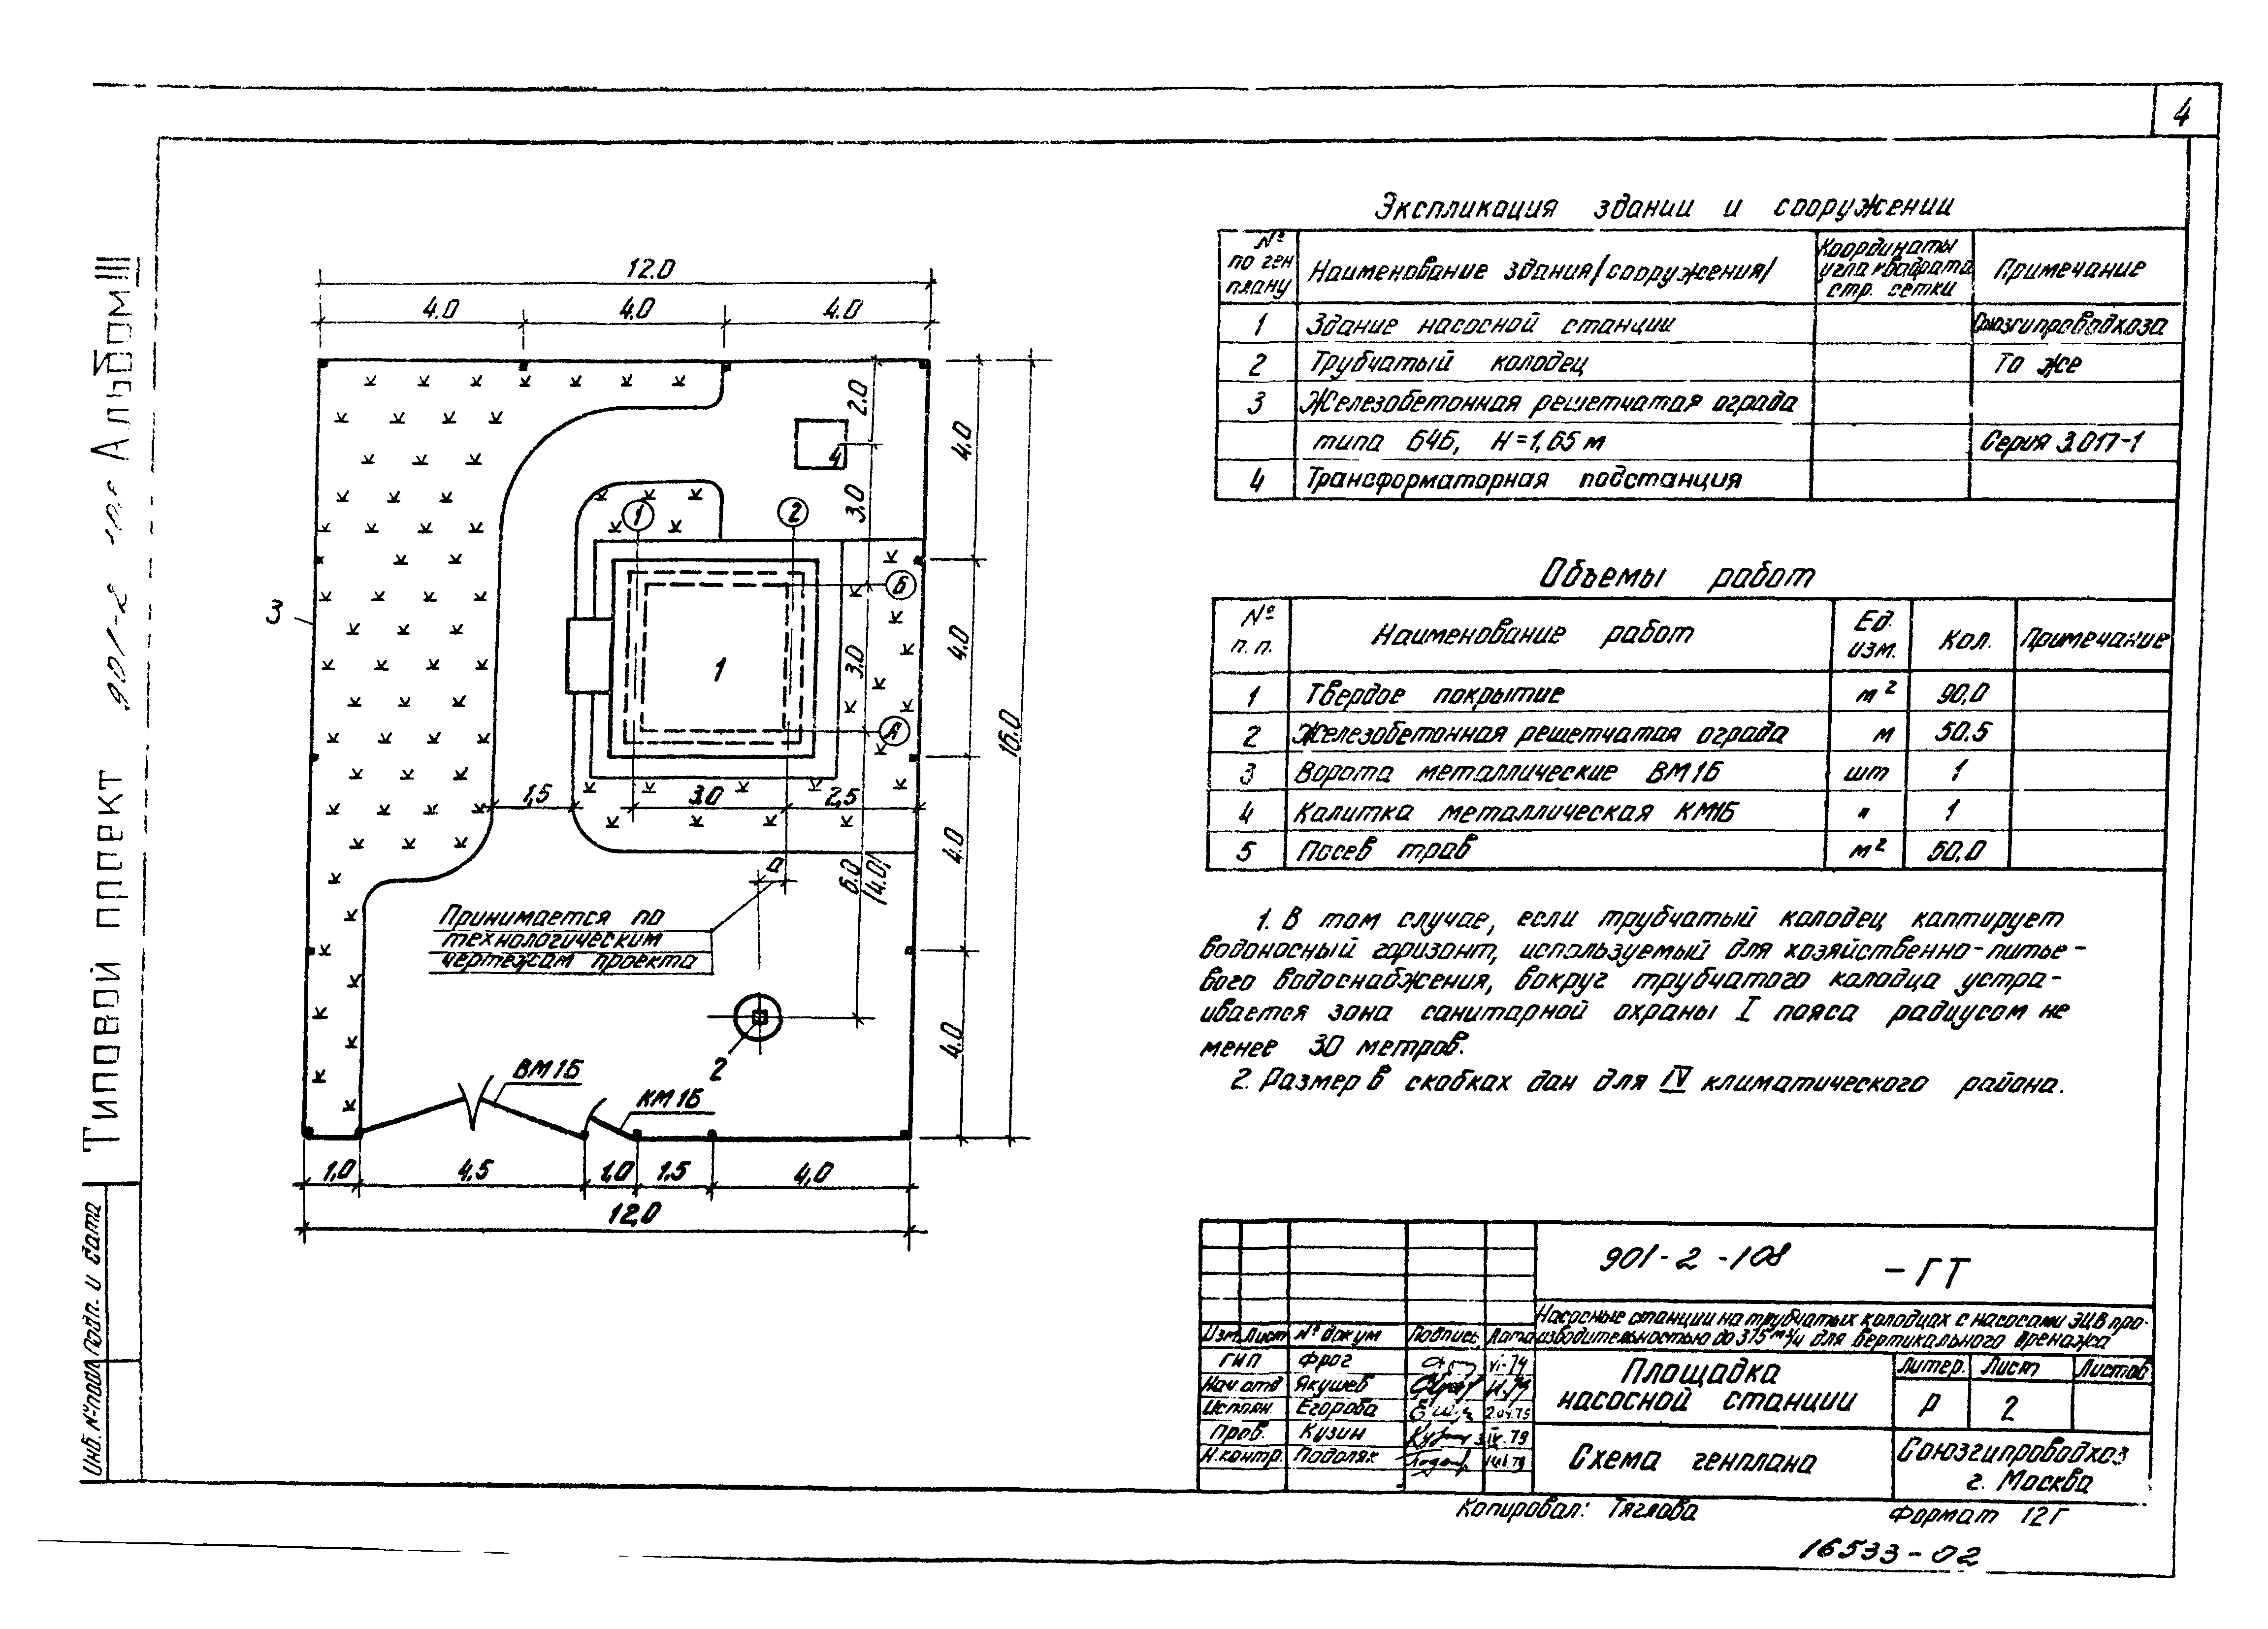 4
Типовой проект 901-2 Альбом III
Инв. № подл. Подп. и дата
12.0
4.0 4.0 4.0
2.0
4
3.0
4.0
1 2
Б
3
1
3.0
4.0
16.0
А
1,5 3.0 2,5
а
6.0
/4.0/
4.0
Принимается по
технологическим
чертежам проекта
2
4.0
ВМ1Б
КМ1Б
1,0 4,5 1,0 1,5 4,0
12,0
Экспликация здании и сооружении
№ по ген плану Наименование здания/сооружения/ Координаты угла квадрата стр. сетки Примечание
1 Здание насосной станции Союзгипроводхоза
2 Трубчатый колодец То же
3 Железобетонная решетчатая ограда
типа Б4Б, Н=1,65 м Серия 3.017-1
4 Трансформаторная подстанция
Объемы работ
№ п.п. Наименование работ Ед. изм. Кол. Примечание
1 Твердое покрытие м² 90,0
2 Железобетонная решетчатая ограда м 50.5
3 Ворота металлические ВМ1Б шт 1
4 Калитка металлическая КМ1Б " 1
5 Посев трав м² 50,0
1. В том случае, если трубчатый колодец каптирует
водоносный горизонт, используемый для хозяйственно-питье-
вого водоснабжения, вокруг трубчатого колодца устра-
ивается зона санитарной охраны I пояса радиусом не
менее 30 метров.
2. Размер в скобках дан для IV климатического района.
901-2-108 -ГТ
Насосные станции на трубчатых колодцах с насосами ЭЦВ про-
изводительностью до 375 м³/ч для вертикального дренажа
Изм. Лист № докум Подпись Дата
ГИП Фрог
Нач. отд Якушев
Исполн. Егорова
Пров. Кузин
Н.контр. Подоляк
Площадка
насосной станции
Литер. Лист Листов
Р 2
Схема генплана
Союзгипроводхоз
г. Москва
Копировал: Тяглова Формат 12Г
16533-02